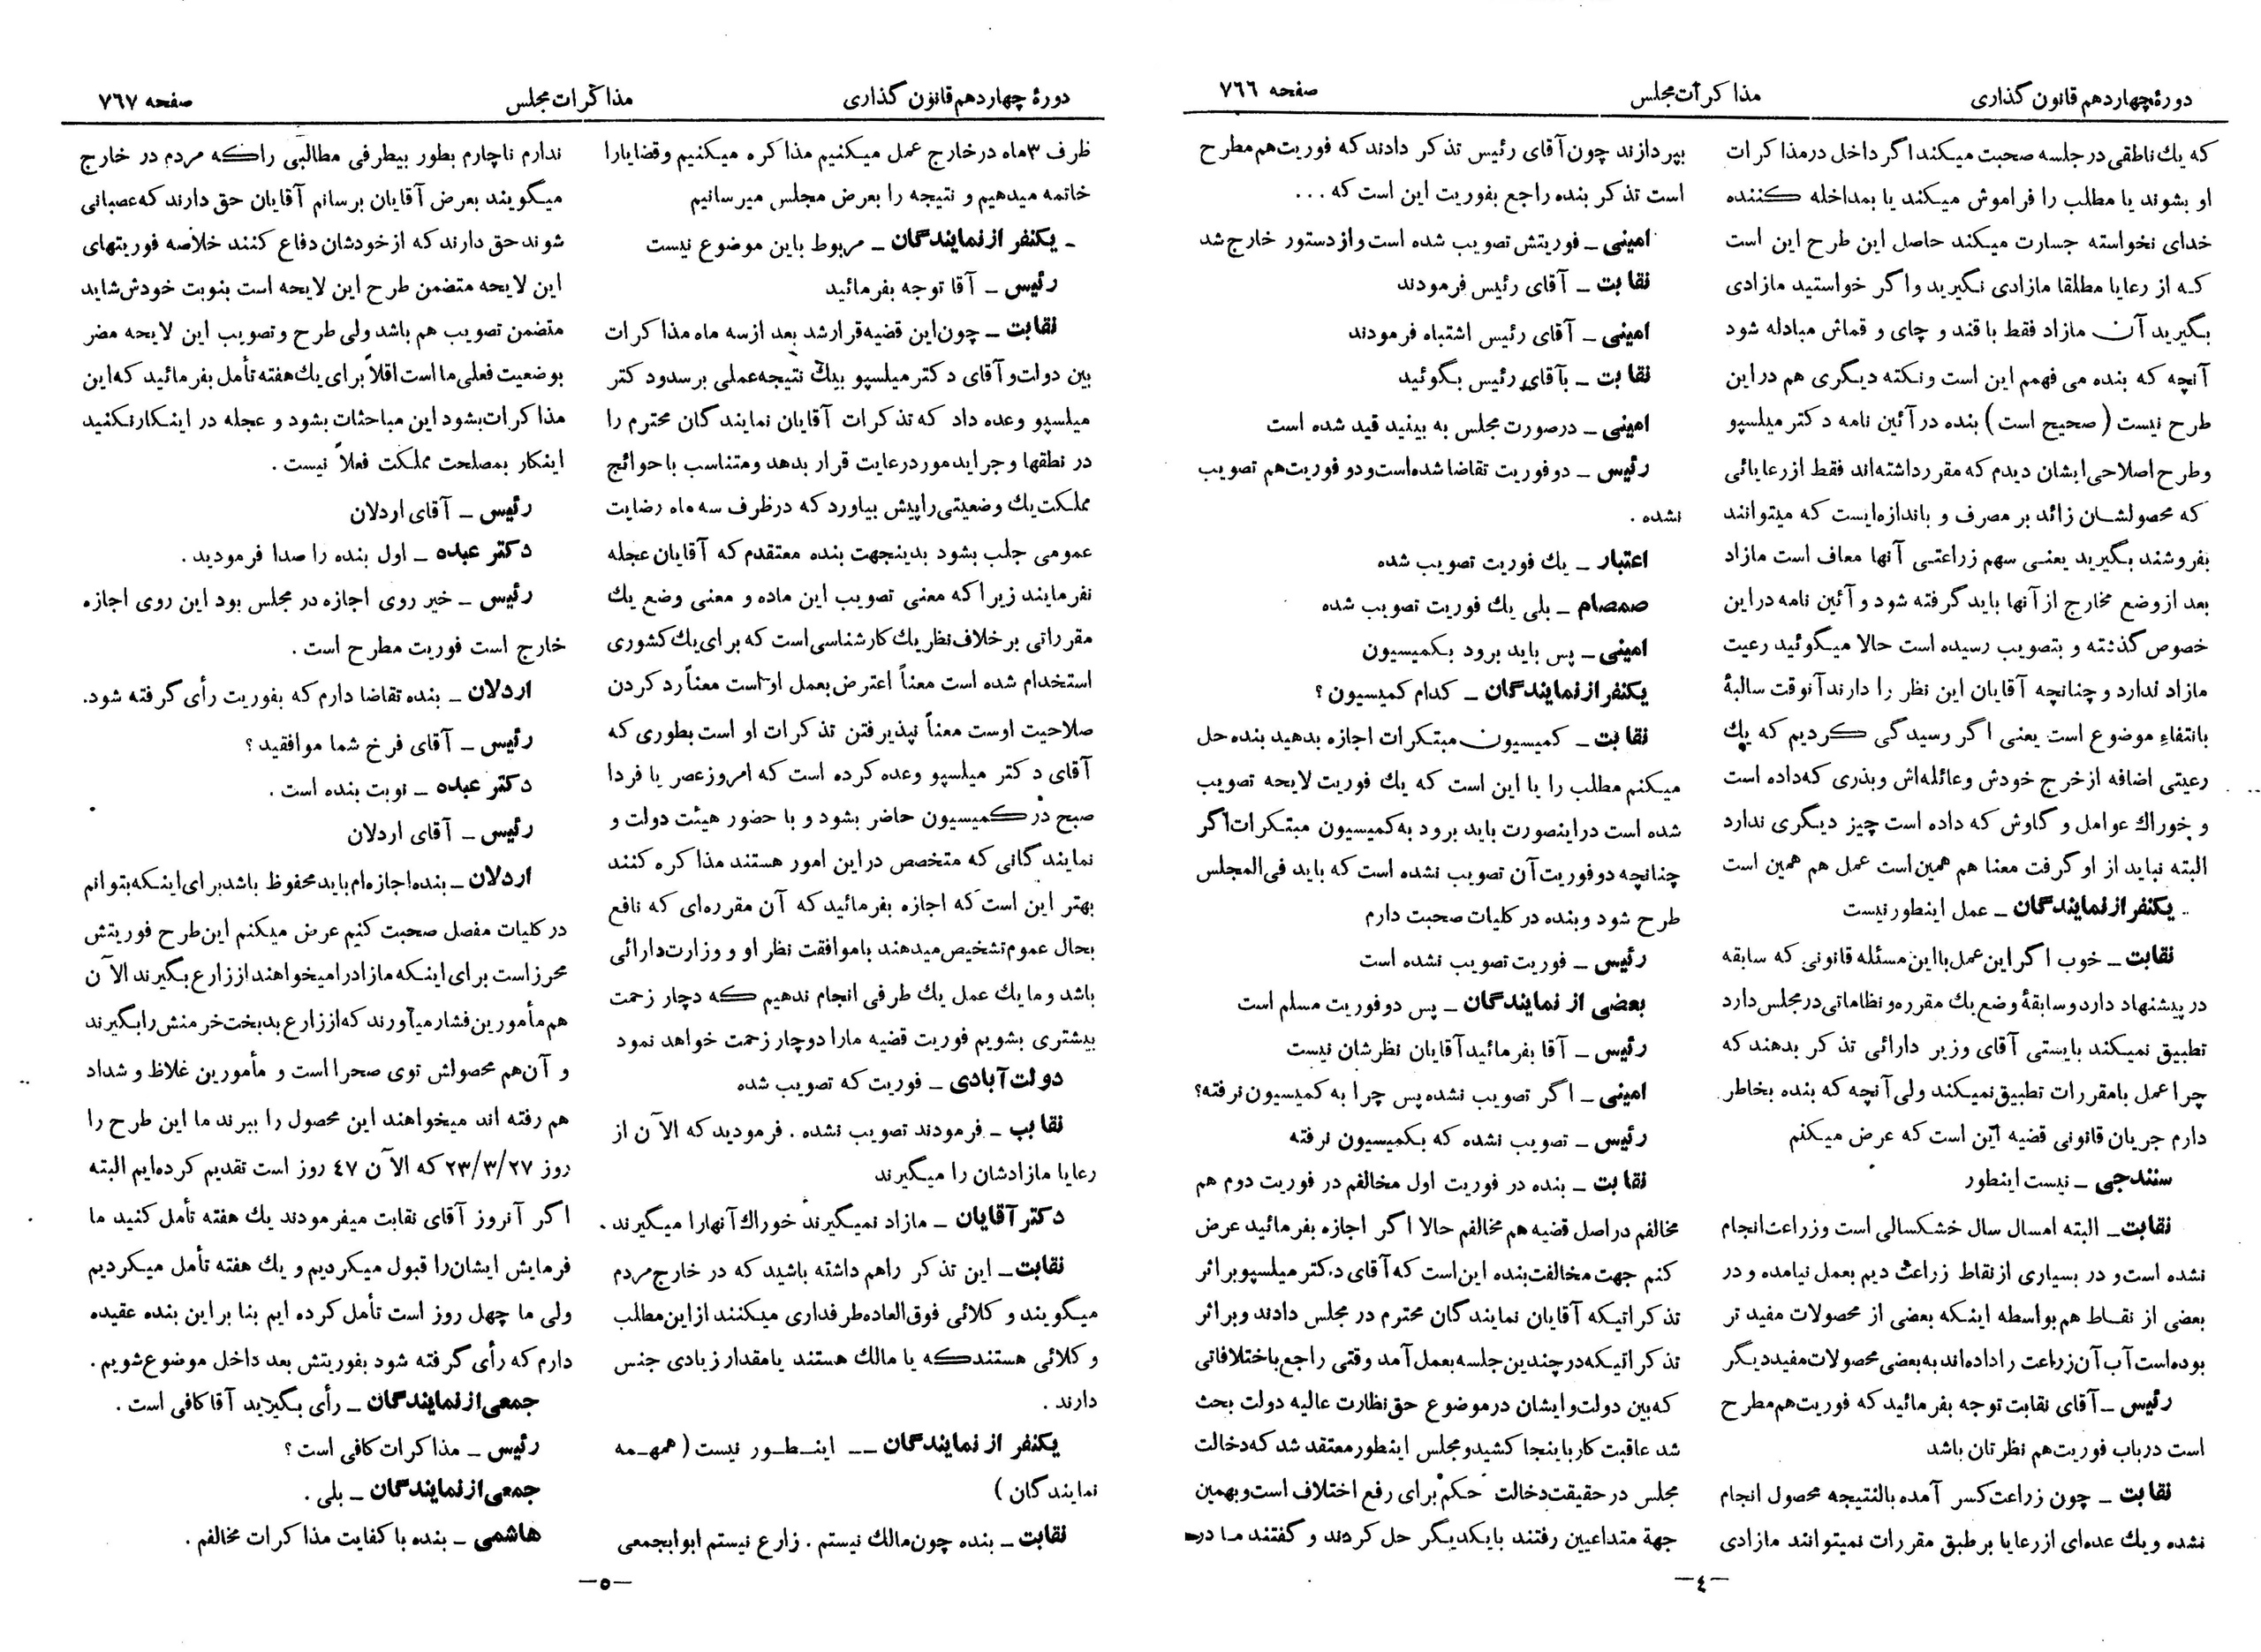 دورهٔ چهاردهم قانون گذاری
مذاکرات مجلس
صفحه ۷٦٦
که یك ناطقی در جلسه صحبت میکند اگر داخل در مذاکرات
او بشوند یا مطلب را فراموش میکند یا بمداخله کننده
خدای نخواسته جسارت میکند حاصل این طرح این است
که از رعایا مطلقا مازادی نگیرید واگر خواستید مازادی
بگیرید آن مازاد فقط با قند و چای و قماش مبادله شود
آنچه که بنده می فهمم این است ونکته دیگری هم در این
طرح نیست ( صحیح است ) بنده در آئین نامه دکتر میلسپو
وطرح اصلاحی ایشان دیدم که مقرر داشته‌اند فقط از رعایائی
که محصولشان زائد بر مصرف و باندازه‌ایست که میتوانند
بفروشند بگیرید یعنی سهم زراعتی آنها معاف است مازاد
بعد از وضع مخارج از آنها باید گرفته شود و آئین نامه در این
خصوص گذشته و بتصویب رسیده است حالا میگوئید رعیت
مازاد ندارد و چنانچه آقایان این نظر را دارند آنوقت سالبهٔ
بانتفاء موضوع است یعنی اگر رسیدگی کردیم که یك
رعیتی اضافه از خرج خودش وعائله‌اش وبذری که داده است
و خوراك عوامل و گاوش که داده است چیز دیگری ندارد
البته نباید از او گرفت معنا هم همین است عمل هم همین است
یکنفر از نمایندگان ـ عمل اینطور نیست
نقابت ـ خوب اگر این عمل با این مسئله قانونی که سابقه
در پیشنهاد دارد وسابقهٔ وضع یك مقرره و نظاماتی در مجلس دارد
تطبیق نمیکند بایستی آقای وزیر دارائی تذکر بدهند که
چرا عمل بامقررات تطبیق نمیکند ولی آنچه که بنده بخاطر
دارم جریان قانونی قضیه این است که عرض میکنم
سنندجی ـ نیست اینطور
نقابت ـ البته امسال سال خشکسالی است وزراعت انجام
نشده است و در بسیاری از نقاط زراعت دیم بعمل نیامده و در
بعضی از نقاط هم بواسطه اینکه بعضی از محصولات مفید تر
بوده است آب آن زراعت را داده‌اند به بعضی محصولات مفید دیگر
رئیس ـ آقای نقابت توجه بفرمائید که فوریت هم مطرح
است در باب فوریت هم نظرتان باشد
نقابت ـ چون زراعت کسر آمده بالنتیجه محصول انجام
نشده و یك عده‌ای از رعایا بر طبق مقررات نمیتوانند مازادی
بپردازند چون آقای رئیس تذکر دادند که فوریت هم مطرح
است تذکر بنده راجع بفوریت این است که ...
امینی ـ فوریتش تصویب شده است و از دستور خارج شد
نقابت ـ آقای رئیس فرمودند
امینی ـ آقای رئیس اشتباه فرمودند
نقابت ـ بآقای رئیس بگوئید
امینی ـ در صورت مجلس به بینید قید شده است
رئیس ـ دو فوریت تقاضا شده است و دو فوریت هم تصویب
نشده .
اعتبار ـ یك فوریت تصویب شده
صمصام ـ بلی یك فوریت تصویب شده
امینی ـ پس باید برود بکمیسیون
یکنفر از نمایندگان ـ کدام کمیسیون ؟
نقابت ـ کمیسیون مبتکرات اجازه بدهید بنده حل
میکنم مطلب را یا این است که یك فوریت لایحه تصویب
شده است در اینصورت باید برود به کمیسیون مبتکرات اگر
چنانچه دو فوریت آن تصویب نشده است که باید فی المجلس
طرح شود و بنده در کلیات صحبت دارم
رئیس ـ فوریت تصویب نشده است
بعضی از نمایندگان ـ پس دو فوریت مسلم است
رئیس ـ آقا بفرمائید آقایان نظرشان نیست
امینی ـ اگر تصویب نشده پس چرا به کمیسیون نرفته؟
رئیس ـ تصویب نشده که بکمیسیون نرفته
نقابت ـ بنده در فوریت اول مخالفم در فوریت دوم هم
مخالفم در اصل قضیه هم مخالفم حالا اگر اجازه بفرمائید عرض
کنم جهت مخالفت بنده این است که آقای دکتر میلسپو بر اثر
تذکراتیکه آقایان نمایندگان محترم در مجلس دادند و بر اثر
تذکراتیکه در چندین جلسه بعمل آمد وقتی راجع باختلافاتی
که بین دولت و ایشان در موضوع حق نظارت عالیه دولت بحث
شد عاقبت کار باینجا کشید و مجلس اینطور معتقد شد که دخالت
مجلس در حقیقت دخالت حکم برای رفع اختلاف است و بهمین
جهة متداعیین رفتند بایکدیگر حل کردند و گفتند ما در
ـ٤ـ
دورهٔ چهاردهم قانون گذاری
مذاکرات مجلس
صفحه ۷٦۷
ظرف ۳ماه در خارج عمل میکنیم مذاکره میکنیم وقضایا را
خاتمه میدهیم و نتیجه را بعرض مجلس میرسانیم
ـ یکنفر از نمایندگان ـ مربوط باین موضوع نیست
رئیس ـ آقا توجه بفرمائید
نقابت ـ چون این قضیه قرار شد بعد از سه ماه مذاکرات
بین دولت و آقای دکتر میلسپو بیك نتیجه عملی برسد ودکتر
میلسپو وعده داد که تذکرات آقایان نمایندگان محترم را
در نطقها و جراید مورد رعایت قرار بدهد ومتناسب با حوائج
مملکت یك وضعیتی را پیش بیاورد که در ظرف سه ماه رضایت
عمومی جلب بشود بدینجهت بنده معتقدم که آقایان عجله
نفرمایند زیرا که معنی تصویب این ماده و معنی وضع یك
مقرراتی بر خلاف نظر یك کارشناسی است که برای یك کشوری
استخدام شده است معناً اعتراض بعمل او است معناً رد کردن
صلاحیت اوست معناً نپذیرفتن تذکرات او است بطوری که
آقای دکتر میلسپو وعده کرده است که امروز عصر یا فردا
صبح در کمیسیون حاضر بشود و با حضور هیئت دولت و
نمایندگانی که متخصص در این امور هستند مذاکره کنند
بهتر این است که اجازه بفرمائید که آن مقرره‌ای که نافع
بحال عموم تشخیص میدهند باموافقت نظر او و وزارت دارائی
باشد و ما یك عمل یك طرفی انجام ندهیم که دچار زحمت
بیشتری بشویم فوریت قضیه مارا دوچار زحمت خواهد نمود
دولت آبادی ـ فوریت که تصویب شده
نقابب ـ فرمودند تصویب نشده . فرمودید که الآن از
رعایا مازادشان را میگیرند
دکتر آقایان ـ مازاد نمیگیرند خوراك آنها را میگیرند .
نقابت ـ این تذکر راهم داشته باشید که در خارج مردم
میگویند وکلائی فوق العاده طرفداری میکنند از این مطلب
وکلائی هستند که یا مالك هستند یا مقدار زیادی جنس
دارند .
یکنفر از نمایندگان ــ اینطور نیست ( همهمه
نمایندگان )
نقابت ـ بنده چون مالك نیستم . زارع نیستم ابوابجمعی
ندارم ناچارم بطور بیطرفی مطالبی را که مردم در خارج
میگویند بعرض آقایان برسانم آقایان حق دارند که عصبانی
شوند حق دارند که از خودشان دفاع کنند خلاصه فوریتهای
این لایحه متضمن طرح این لایحه است بنوبت خودش شاید
متضمن تصویب هم باشد ولی طرح و تصویب این لایحه مضر
بوضعیت فعلی ما است اقلاً برای یك هفته تأمل بفرمائید که این
مذاکرات بشود این مباحثات بشود و عجله در اینکار نکنید
اینکار بمصلحت مملکت فعلاً نیست .
رئیس ـ آقای اردلان
دکتر عبده ـ اول بنده را صدا فرمودید .
رئیس ـ خیر روی اجازه در مجلس بود این روی اجازه
خارج است فوریت مطرح است .
اردلان ـ بنده تقاضا دارم که بفوریت رأی گرفته شود.
رئیس ـ آقای فرخ شما موافقید ؟
دکتر عبده ـ نوبت بنده است .
رئیس ـ آقای اردلان
اردلان ـ بنده اجازه‌ام باید محفوظ باشد برای اینکه بتوانم
در کلیات مفصل صحبت کنیم عرض میکنم این طرح فوریتش
محرز است برای اینکه مازاد را میخواهند از زارع بگیرند الآن
هم مأمورین فشار میآورند که از زارع بدبخت خرمنش را بگیرند
و آن هم محصولش توی صحرا است و مأمورین غلاظ و شداد
هم رفته اند میخواهند این محصول را ببرند ما این طرح را
روز ۲۳/۳/۲۷ که الآن ٤۷ روز است تقدیم کرده‌ایم البته
اگر آنروز آقای نقابت میفرمودند یك هفته تأمل کنید ما
فرمایش ایشان را قبول میکردیم و یك هفته تأمل میکردیم
ولی ما چهل روز است تأمل کرده ایم بنا براین بنده عقیده
دارم که رأی گرفته شود بفوریتش بعد داخل موضوع شویم .
جمعی از نمایندگان ـ رأی بگیرید آقا کافی است .
رئیس ـ مذاکرات کافی است ؟
جمعی از نمایندگان ـ بلی .
هاشمی ـ بنده با کفایت مذاکرات مخالفم .
ـ٥ـ